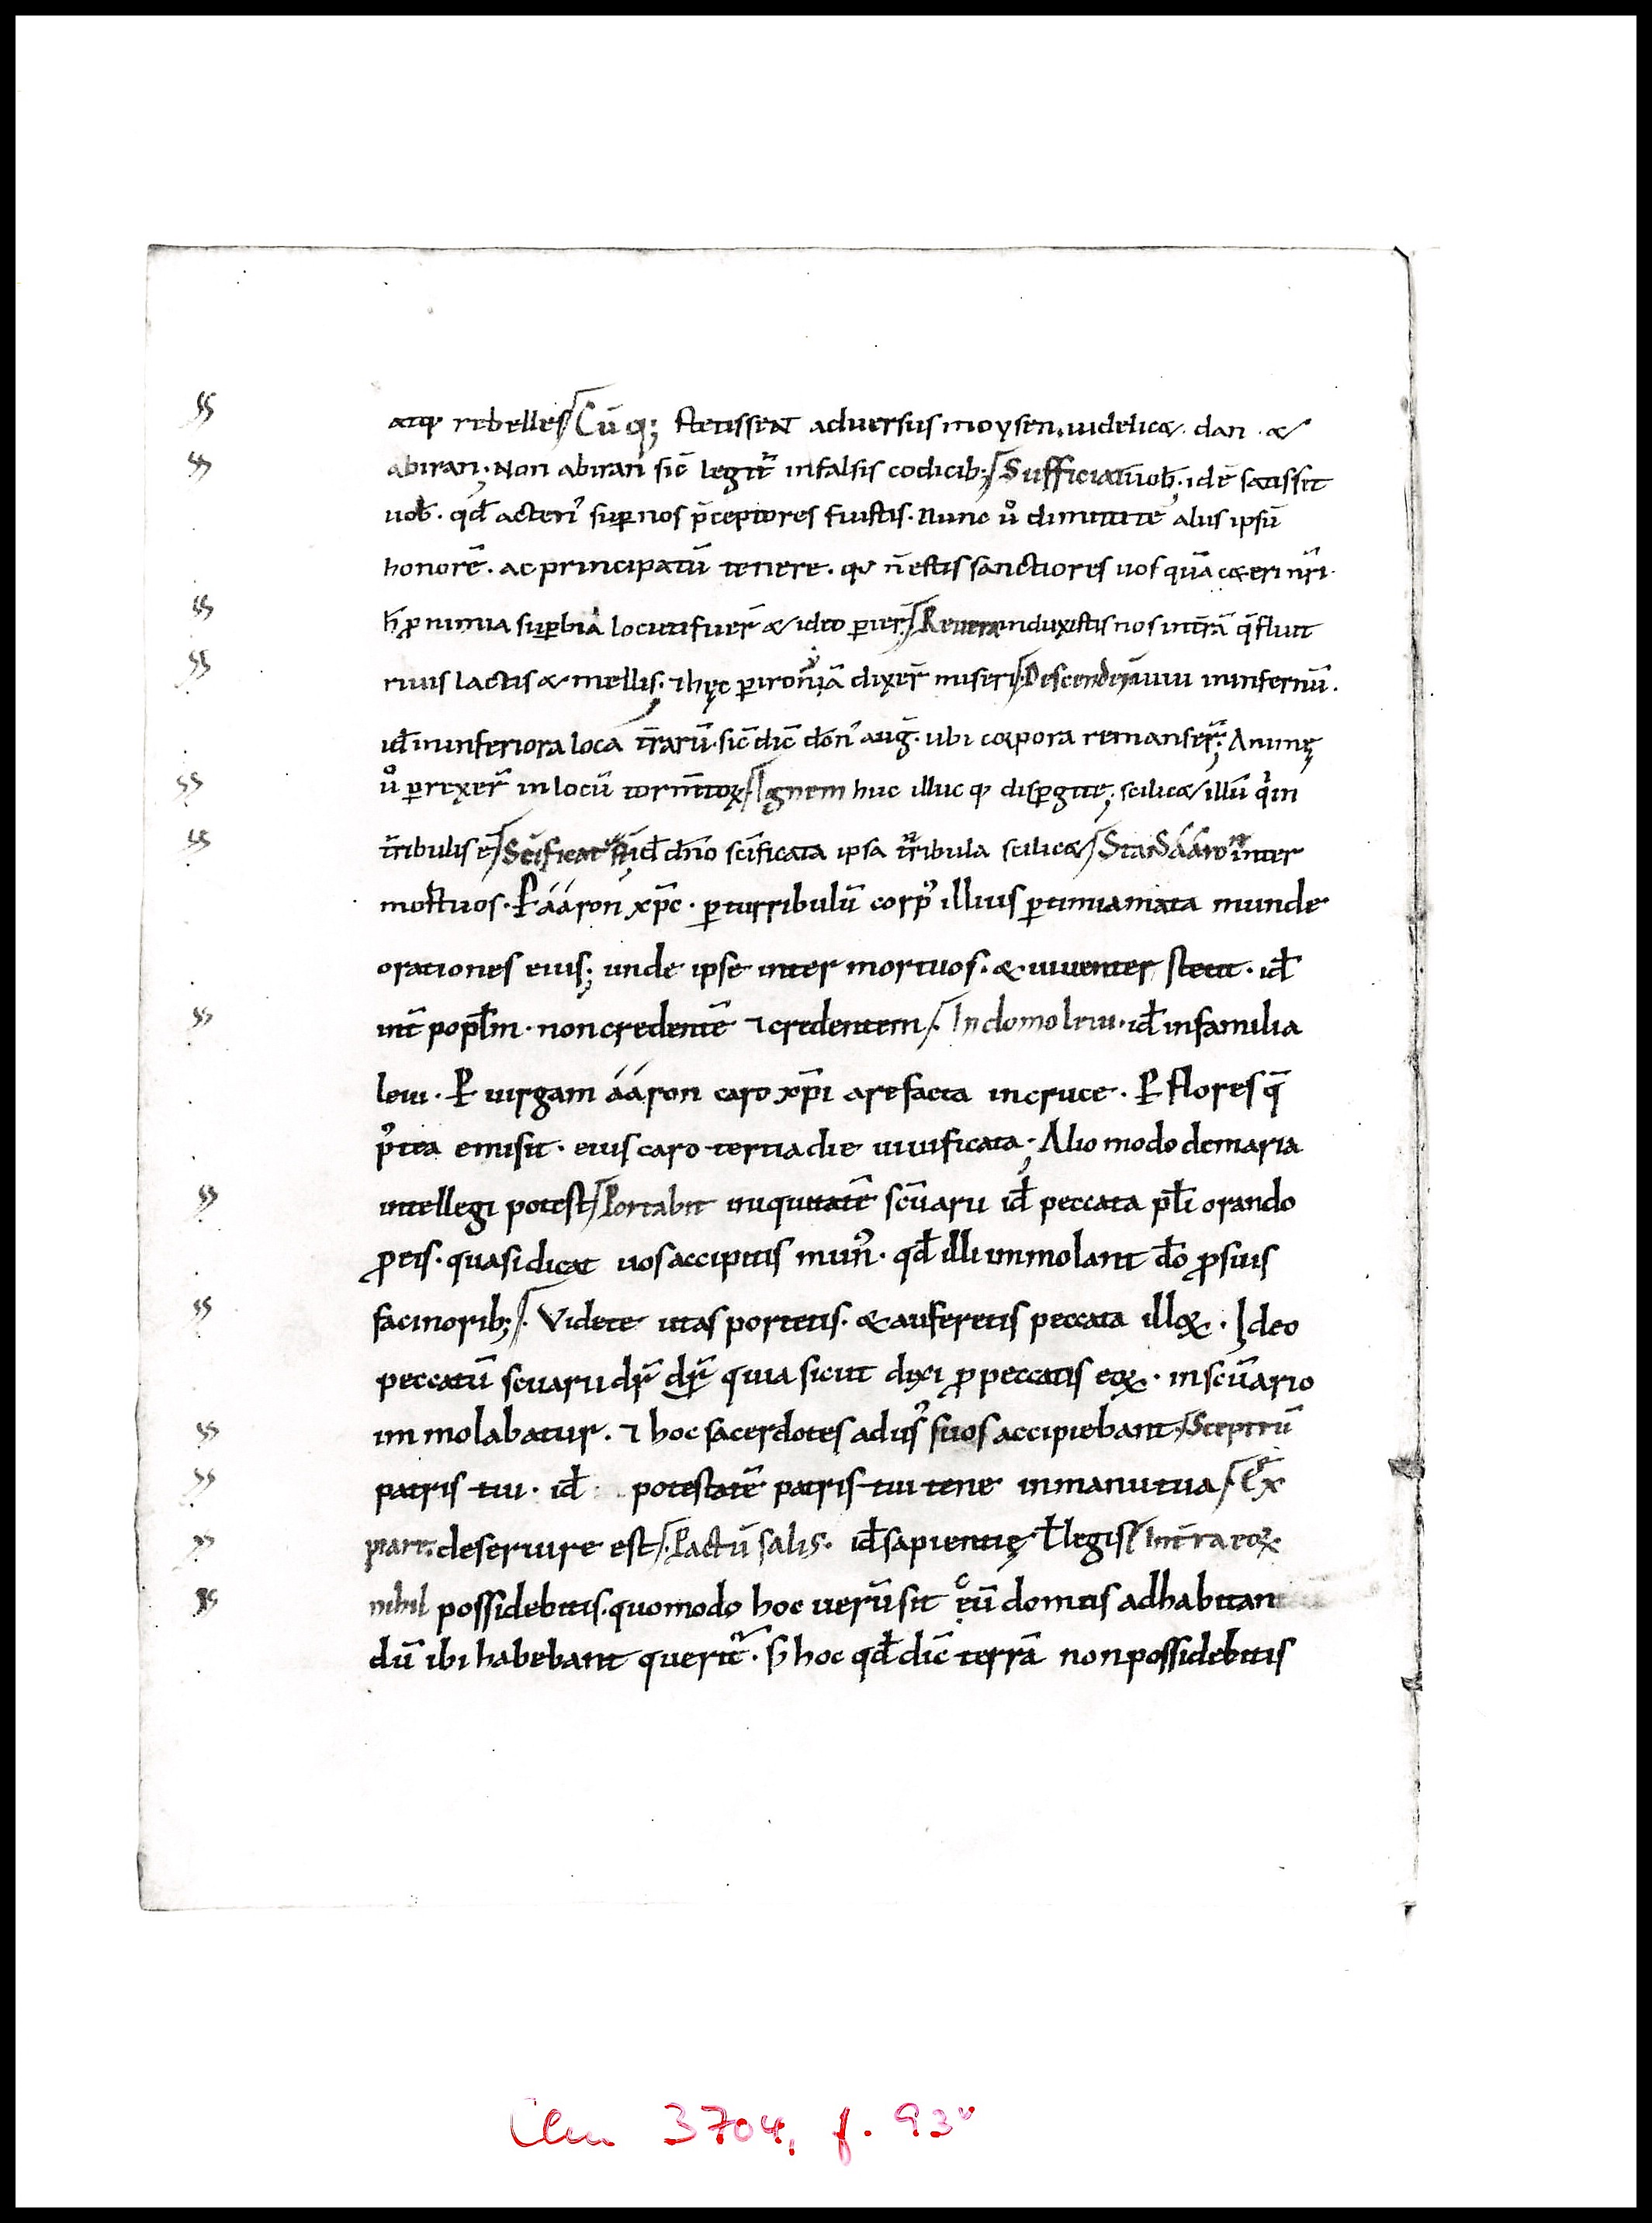 atq; rebelles / Cū q; stetissent adversus moysen. videlic& . dan . &
abiran; Non abiran sic̄ legit̄ in falsis codicib; / Sufficiat uob̄. id ē satis sit
uob̄ . qd̄ acten᾿ sup nos p̄ceptores fuistis . Nunc ů dimittite aliis ipsū
honorē . ac principatū tenere . n̄ estis sanctiores uos quā c&eri nr̄i .
nimia supbia locuti fuer̄ & ideo pier̄ / Revera induxisti nos in tr̄ā q̄ fluit
riuis lactis & mellis . ⁊ hęc p ironiā dixer̄ miseri / Descender̄ uiui in infernū .
id̄ in inferiora loca tr̄arū . sic̄ dic̄ don᾿ auḡ . ubi corpora remanser̄ ; Animę
ů prexer̄ in locū torm̄toꝝ / Ignem huc illuc q; dispgite ; scilic& illū qͥ in
tr̄ribulis ē / Sc̄ificat id̄ dn̄o sc̄ificata ipsa tr̄ribula scilic& / Stans ááron inter
mortuos . P ááron xp̄c . p turribulū corp᾿ illius p timiamata munde
orationes eius ; unde ipse inter mortuos . & uiuentes stetit . id̄
int̄ popl̄m . non credentē ⁊ credentem / . In domo leui . id̄ in familia
leui . P uirgam ááron caro xp̄i arefacta in cruce . P flores q̄
p᾿tea emisit . eius caro tertia die uiuificata ; Alio modo de maria
intellegi potest / Portabit iniquitatē scūaru id̄ peccata pl̄i orando
ꝓ eis . quasi dicat uos accipitis mun᾿ . qd̄ illi immolant dō ꝓ suis
facinorib; / . Videte ut as portetis . & auferetis peccata illoꝝ . Ideo
peccatū scuaru dr̄ dr̄ quia sicut dixi ꝓ peccatis eoꝝ . in scūario
immolabatur . ⁊ hoc sacerdotes ad us᾿ suos accipiebant / Sceptrū
patris tui . id̄ potestatē patris tui tene in manu tua / Ex
piare . deseruire est / . Pactū salis . id̄ sapientię ł legis / In tr̄a eoꝝ
nihil possidebitis . quomodo hoc uerū sit cū domus ad habitan
dū ibi habebant querit̄ . S; hoc qd̄ dic̄ terrā non possidebitis
Clm 3704, f. 93v